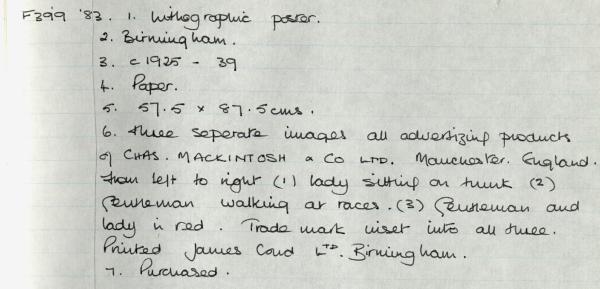 F399 '83. 1. Lithographic poster.
2. Birmingham.
3. c1925 - 39
4. Paper.
5. 57.5 x 87.5cms.
6. three seperate images all advertizing products
of CHAS. MACKINTOSH & CO LTD. Manchester. England.
From left to right (1) lady sitting on trunk (2)
Gentleman walking at races. (3) Gentleman and
lady in red. Trade mark inset into all three.
Printed James Cond LTD. Birmingham.
7. Purchased.